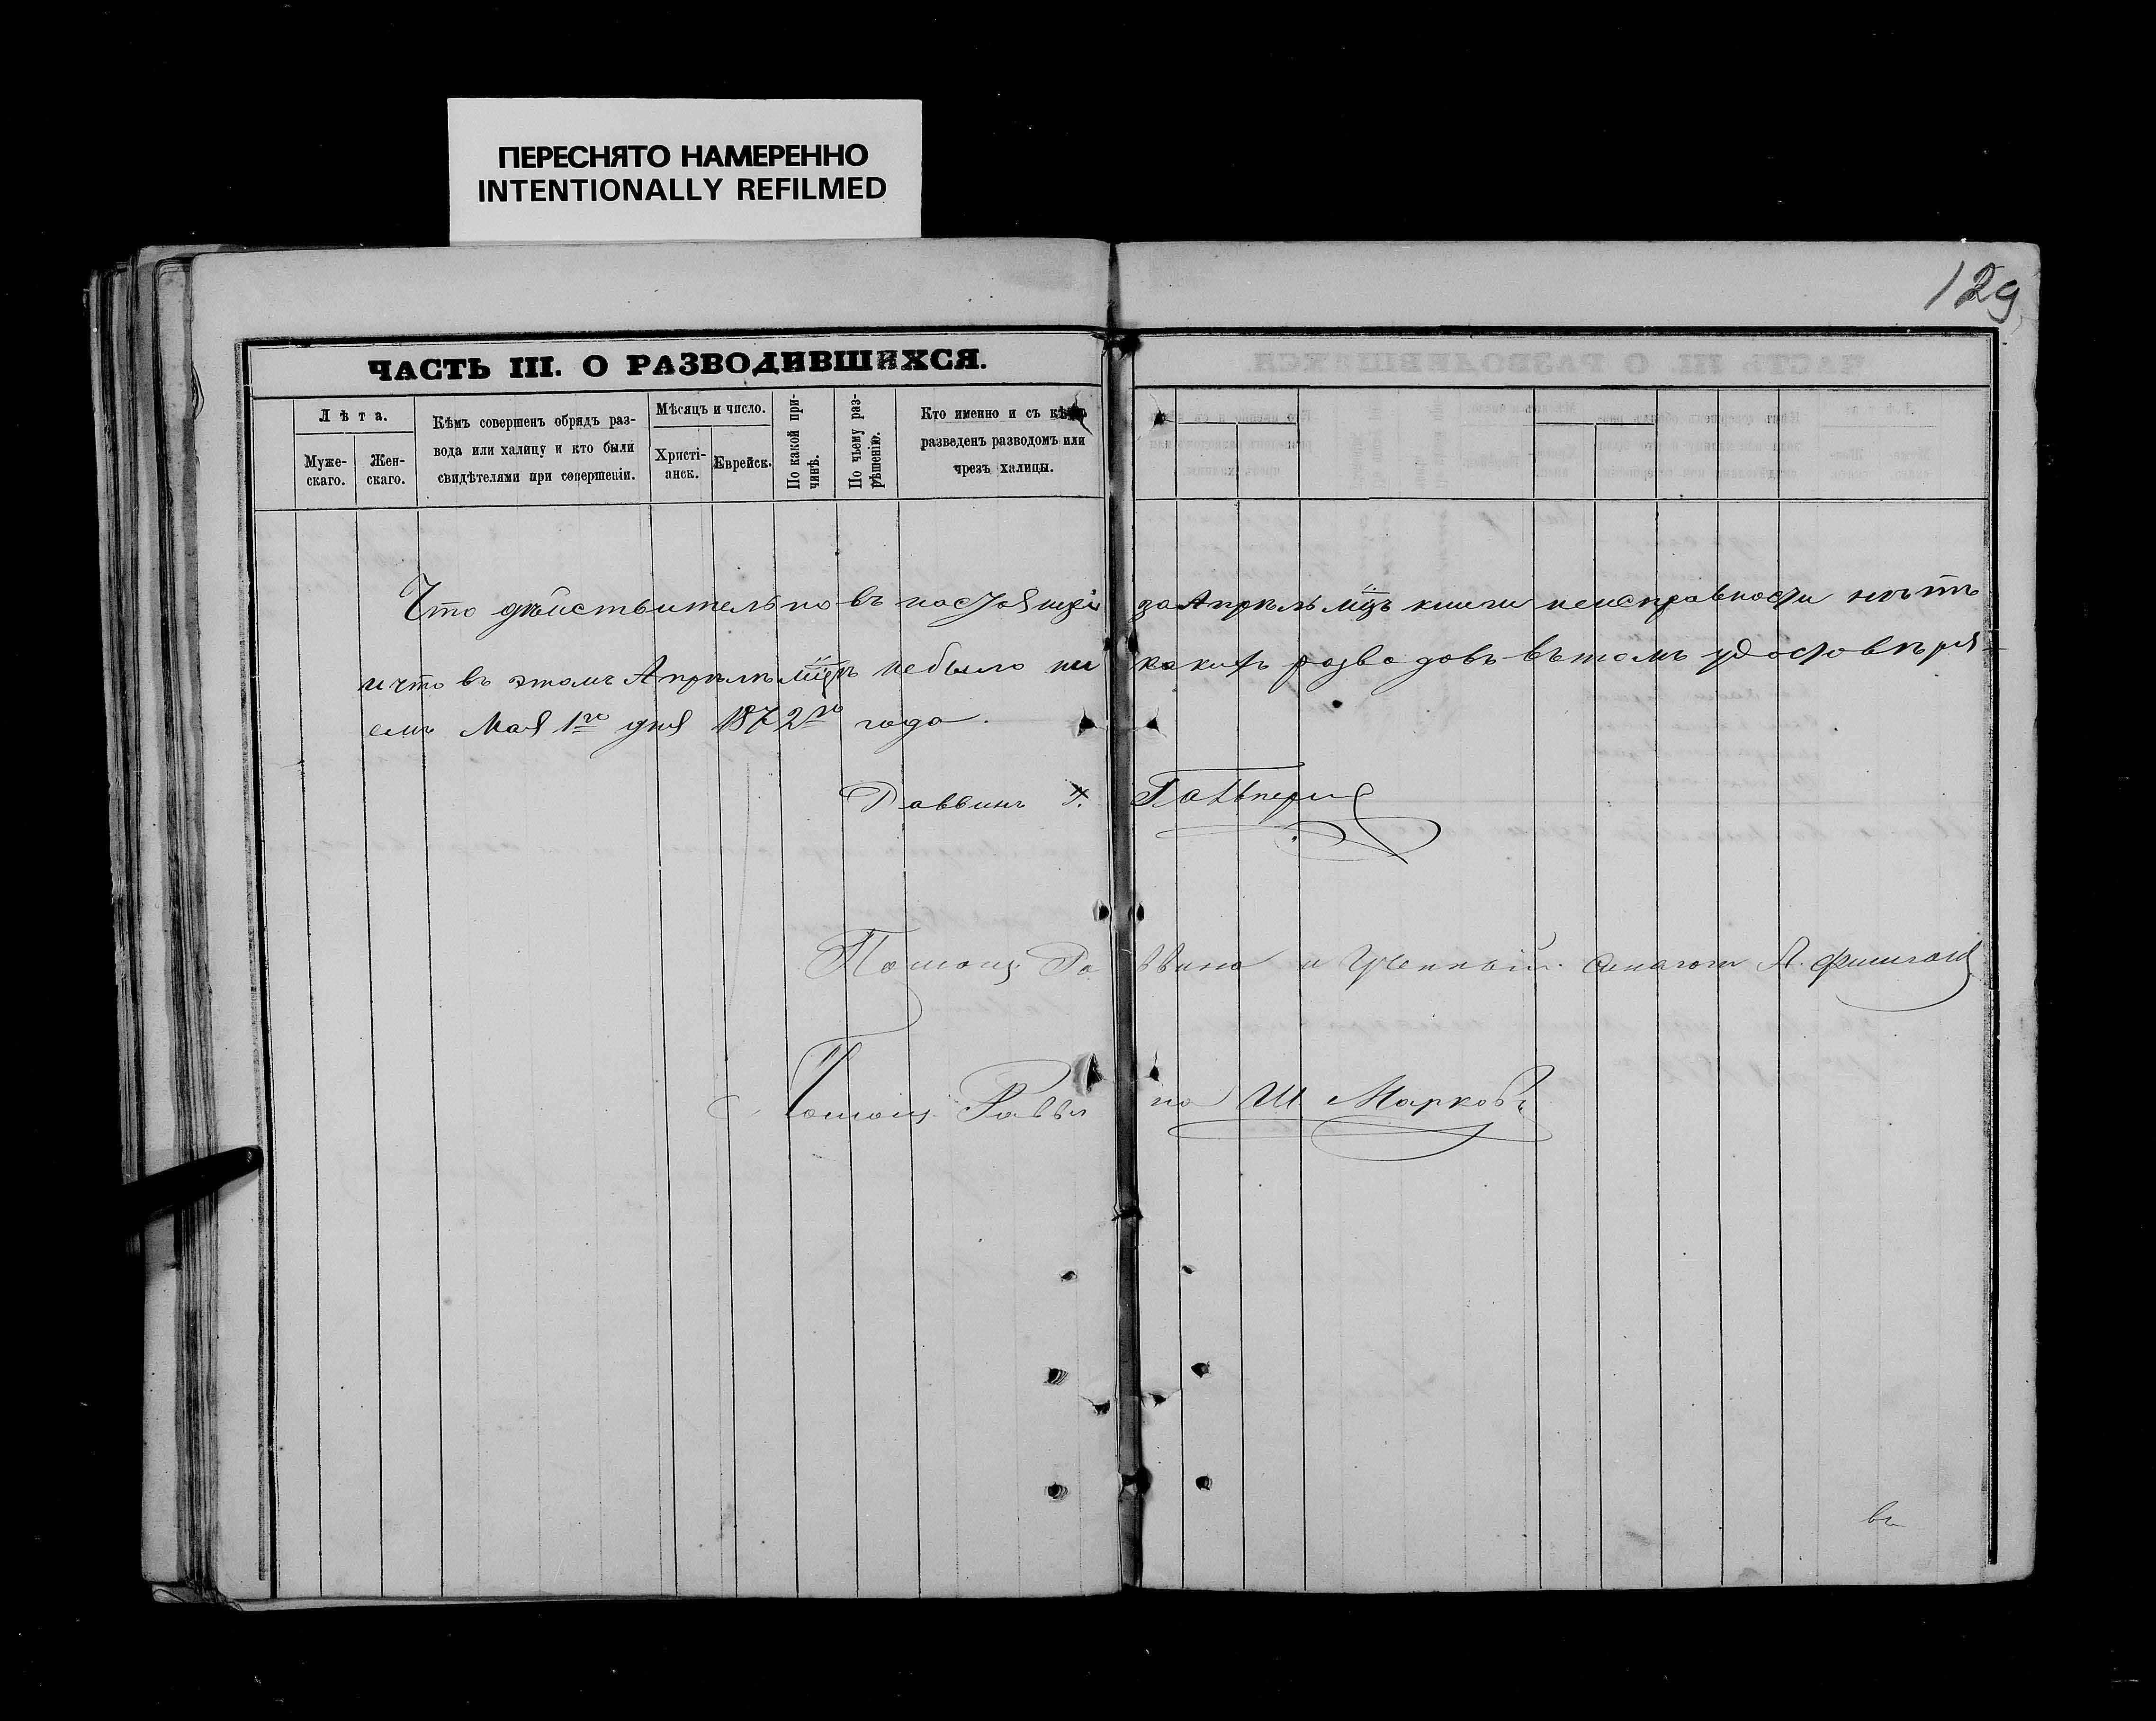 ПЕРЕСНЯТО НАМЕРЕННО
INTENTIONALLY REFILMED
129
ЧАСТЬ III. О РАЗВОДИВШИХСЯ.
Лѣта.
Муже-
скаго.
Жен-
скаго.
Кѣмъ совершенъ обрядъ раз-
вода или халицу и кто были
свидѣтелями при совершеніи.
Мѣсяцъ и число.
Христі-
анск.
Еврейск.
По какой при-
чинѣ.
По чьему раз-
рѣшенію.
Кто именно и съ кѣмъ
разведенъ разводомъ или
чрезъ халицы.
Что дѣйствительно въ настоящей за Апрѣль мцъ книги неисправности нѣтъ
и что въ этомъ Апрѣлѣ мцѣ небыло ни какихъ разводовъ въ томъ удостовѣря-
емъ Мая 1го дня 1872го года.
Раввинъ Гальперин
Помощ. Раввина и Ученный
Помощ. Раввина Ш Марковъ